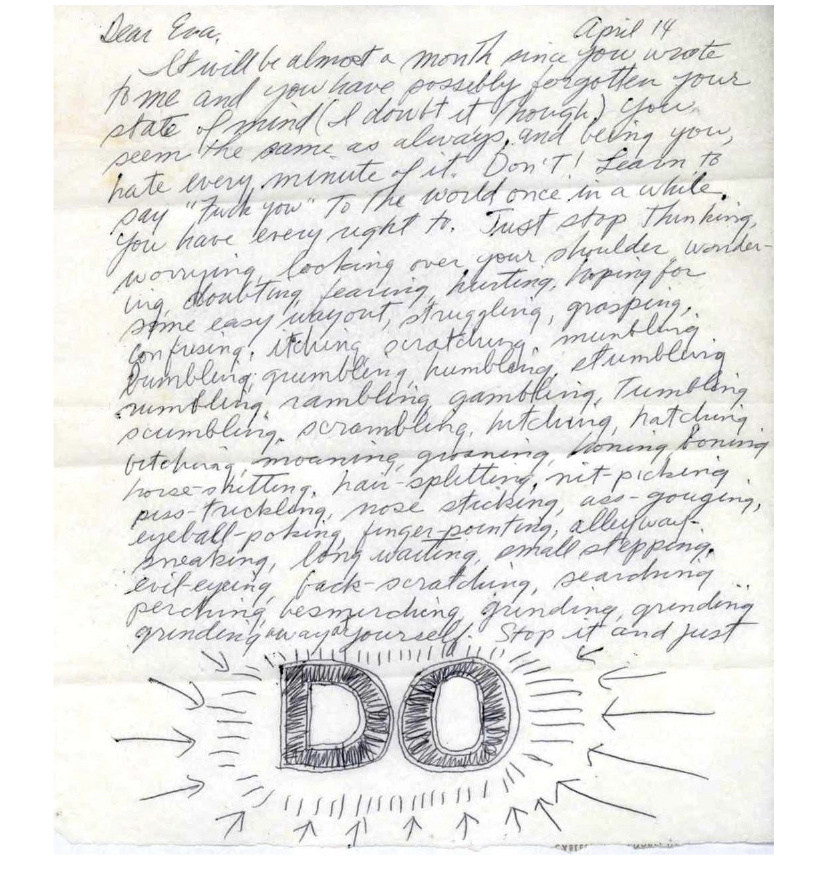 Dear Eva, April 14
It will be almost a month since you wrote
to me and you have possibly forgotten your
state of mind (I doubt it though). You
seem the same as always, and being you,
hate every minute of it. Don't! Learn to
say "Fuck You" to the world once in a while.
You have every right to. Just stop thinking,
worrying, looking over your shoulder, wonder-
ing, doubting, fearing, hurting, hoping for
some easy way out, struggling, grasping,
confusing, itching, scratching, mumbling,
bumbling, grumbling, humbling, stumbling,
rumbling, rambling, gambling, tumbling,
scumbling, scrambling, hitching, hatching,
bitching, moaning, groaning, honing, boning
horse-shitting, hair-splitting, nit-picking
piss-trickling, nose sticking, ass-gouging,
eyeball-poking, finger-pointing, alleyway-
sneaking, long waiting, small stepping,
evil-eyeing, back-scratching, searching
perching, besmirching, grinding, grinding
grinding away at yourself. Stop it and just
DO